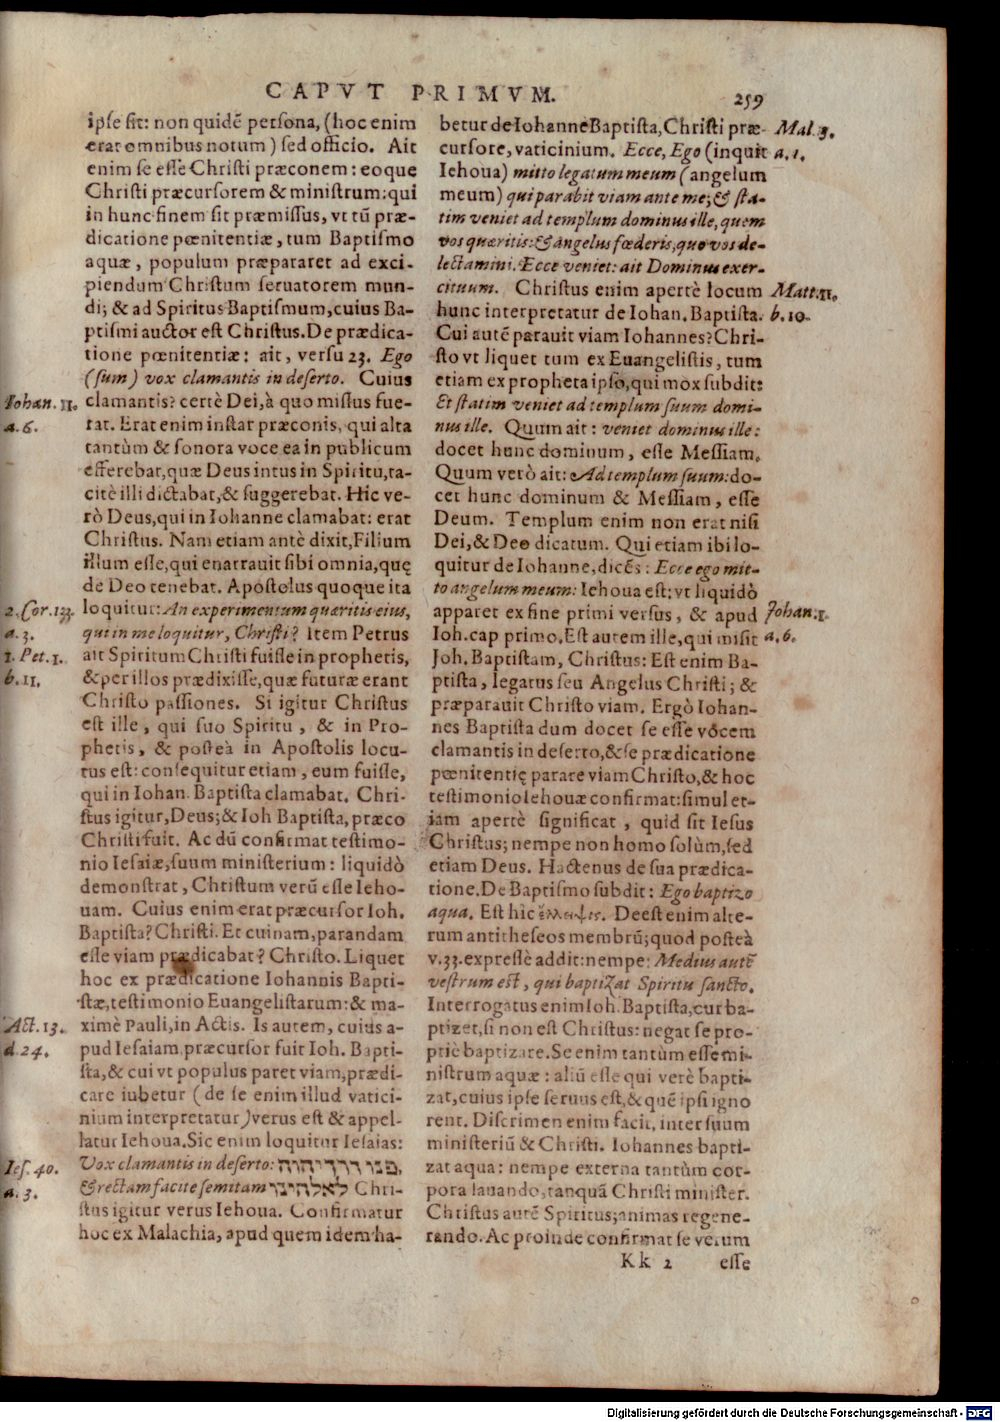 CAPVT PRIMVM.
259
ipſe ſit: non quidē perſona, (hoc enim
erat omnibus notum) ſed officio. Ait
enim ſe eſſe Chriſti præconem: eoque
Chriſti præcurſorem & miniſtrum: qui
in hunc finem ſit præmiſſus, vt tū præ-
dicatione pœnitentiæ, tum Baptiſmo
aquæ, populum præpararet ad exci-
piendum Chriſtum ſeruatorem mun-
di; & ad Spiritus Baptiſmum, cuius Ba-
ptiſmi auctor eſt Chriſtus. De prædica-
tione pœnitentiæ: ait, verſu 23. Ego
(ſum) vox clamantis in deſerto. Cuius
Iohan. 11.
clamantis? certè Dei, à quo miſſus fue-
a. 6.
rat. Erat enim inſtar præconis, qui alta
tantùm & ſonora voce ea in publicum
efferebat, quæ Deus intus in Spiritu, ta-
citè illi dictabat, & ſuggerebat. Hic ve-
rò Deus, qui in Iohanne clamabat: erat
Chriſtus. Nam etiam antè dixit, Filium
illum eſſe, qui enarrauit ſibi omnia, quę
de Deo tenebat. Apoſtolus quoque ita
2. Cor. 133.
loquitur: An experimentum quæritis eius,
a. 3.
qui in me loquitur, Chriſti? Item Petrus
1. Pet. 1.
ait Spiritum Chriſti fuiſſe in prophetis,
b. 11.
& per illos prædixiſſe, quæ futuræ erant
Chriſto paſſiones. Si igitur Chriſtus
eſt ille, qui ſuo Spiritu, & in Pro-
phetis, & poſteà in Apoſtolis locu-
tus eſt: conſequitur etiam, eum fuiſſe,
qui in Iohan. Baptiſta clamabat. Chri-
ſtus igitur, Deus; & Ioh Baptiſta, præco
Chriſti fuit. Ac dū confirmat teſtimo-
nio Ieſaiæ, ſuum miniſterium: liquidò
demonſtrat, Chriſtum verū eſſe Ieho-
uam. Cuius enim erat præcurſor Ioh.
Baptiſta? Chriſti. Et cuinam, parandam
eſſe viam prædicabat? Chriſto. Liquet
hoc ex prædicatione Iohannis Bapti-
ſtæ, teſtimonio Euangeliſtarum: & ma-
Act. 13.
ximè Pauli, in Actis. Is autem, cuius a-
d. 24.
pud Ieſaiam præcurſor fuit Ioh. Bapti-
ſta, & cui vt populus paret viam, prædi-
care iubetur (de ſe enim illud vatici-
nium interpretatur) verus eſt & appel-
latur Iehoua. Sic enim loquitur Ieſaias:
Ieſ. 40.
Vox clamantis in deſerto: פנו דרך יהוה,
a. 3.
& rectam facite ſemitam לאלהינו Chri-
ſtus igitur verus Iehoua. Confirmatur
hoc ex Malachia, apud quem idem ha-
betur de Iohanne Baptiſta, Chriſti præ-
Mal. 3.
curſore, vaticinium. Ecce, Ego (inquit
a. 1.
Iehoua) mitto legatum meum (angelum
meum) qui parabit viam ante me; & ſta-
tim veniet ad templum dominus ille, quem
vos quæritis: & angelus fœderis, quo vos de-
lectamini. Ecce veniet: ait Dominus exer-
cituum. Chriſtus enim apertè locum
Matt. 11.
hunc interpretatur de Iohan. Baptiſta.
b. 10.
Cui autē parauit viam Iohannes? Chri-
ſto vt liquet tum ex Euangeliſtis, tum
etiam ex propheta ipſo, qui mox ſubdit:
Et ſtatim veniet ad templum ſuum domi-
nus ille. Quum ait: veniet dominus ille:
docet hunc dominum, eſſe Meſſiam.
Quum verò ait: Ad templum ſuum: do-
cet hunc dominum & Meſſiam, eſſe
Deum. Templum enim non erat niſi
Dei, & Deo dicatum. Qui etiam ibi lo-
quitur de Iohanne, dicēs: Ecce ego mit-
to angelum meum: Iehoua eſt: vt liquidò
apparet ex fine primi verſus, & apud
Johan. 1.
Ioh. cap primo. Eſt autem ille, qui miſit
a. 6.
Joh. Baptiſtam, Chriſtus: Eſt enim Ba-
ptiſta, legatus ſeu Angelus Chriſti; &
præparauit Chriſto viam. Ergò Iohan-
nes Baptiſta dum docet ſe eſſe vocem
clamantis in deſerto, & ſe prædicatione
pœnitentię parare viam Chriſto, & hoc
teſtimonio Iehouæ confirmat: ſimul et-
iam apertè ſignificat, quid ſit Ieſus
Chriſtus; nempe non homo ſolùm, ſed
etiam Deus. Hactenus de ſua prædica-
tione. De Baptiſmo ſubdit: Ego baptizo
aqua. Eſt hic ἔλλειψις. Deeſt enim alte-
rum antitheſeos membrū; quod poſteà
v. 33. expreſſè addit: nempe: Medius autē
veſtrum eſt, qui baptizat Spiritu ſancto.
Interrogatus enim Ioh. Baptiſta, cur ba-
ptizet, ſi non eſt Chriſtus: negat ſe pro-
priè baptizare. Se enim tantùm eſſe mi-
niſtrum aquæ: aliū eſſe qui verè bapti-
zat, cuius ipſe ſeruus eſt, & quē ipſi igno
rent. Diſcrimen enim facit, inter ſuum
miniſteriū & Chriſti. Iohannes bapti-
zat aqua: nempe externa tantùm cor-
pora lauando, tanquā Chriſti miniſter.
Chriſtus autē Spiritus; animas regene-
rando. Ac proinde confirmat ſe verum
Kk 2
eſſe
Digitalisierung gefördert durch die Deutsche Forschungsgemeinschaft - DFG